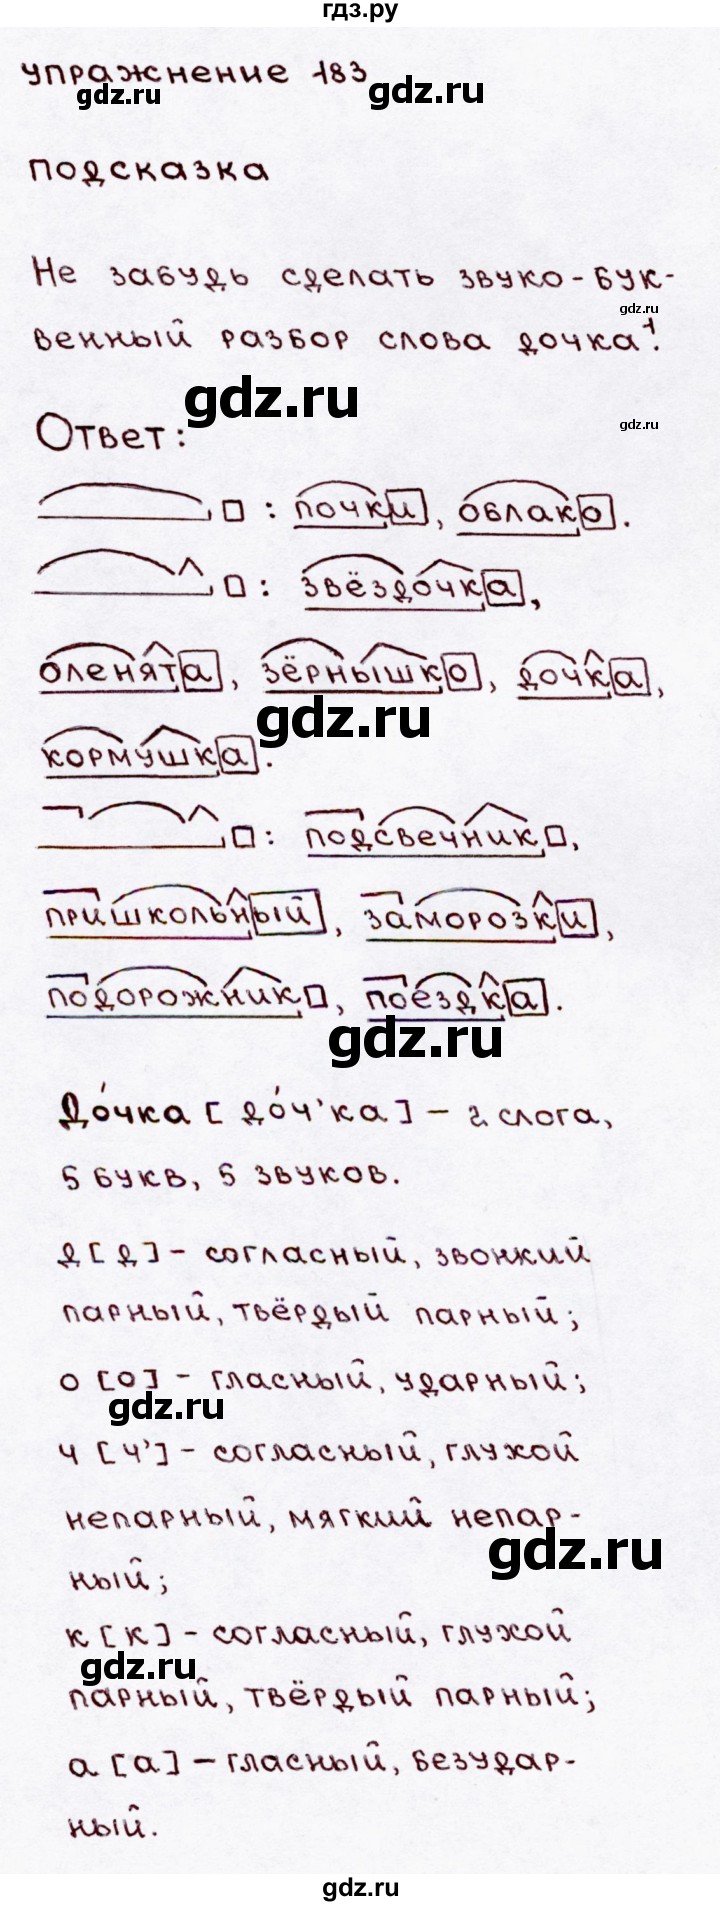 гдз.ру
упражнение 183
gdz.ru
gdz.ru
подсказка
Не забудь сделать звуко-бук-
gdz.ru
венный разбор слова дочка¹.
gdz.ru
gdz.ru
Ответ:
: почки, облако.
: звёздочка,
оленята, зёрнышко, дочка,
gdz.ru
кормушка.
: подсвечник,
пришкольный, заморозки,
подорожник, поездка.
gdz.ru
До́чка [до́ч'ка] – 2 слога,
5 букв, 5 звуков.
д [д] – согласный, звонкий
парный, твёрдый парный;
о [о] – гласный, ударный;
gdz.ru
ч [ч'] – согласный, глухой
непарный, мягкий непар-
gdz.ru
ный;
к [к] – согласный, глухой
gdz.ru
парный, твёрдый парный;
а [а] – гласный, безудар-
ный.
gdz.ru